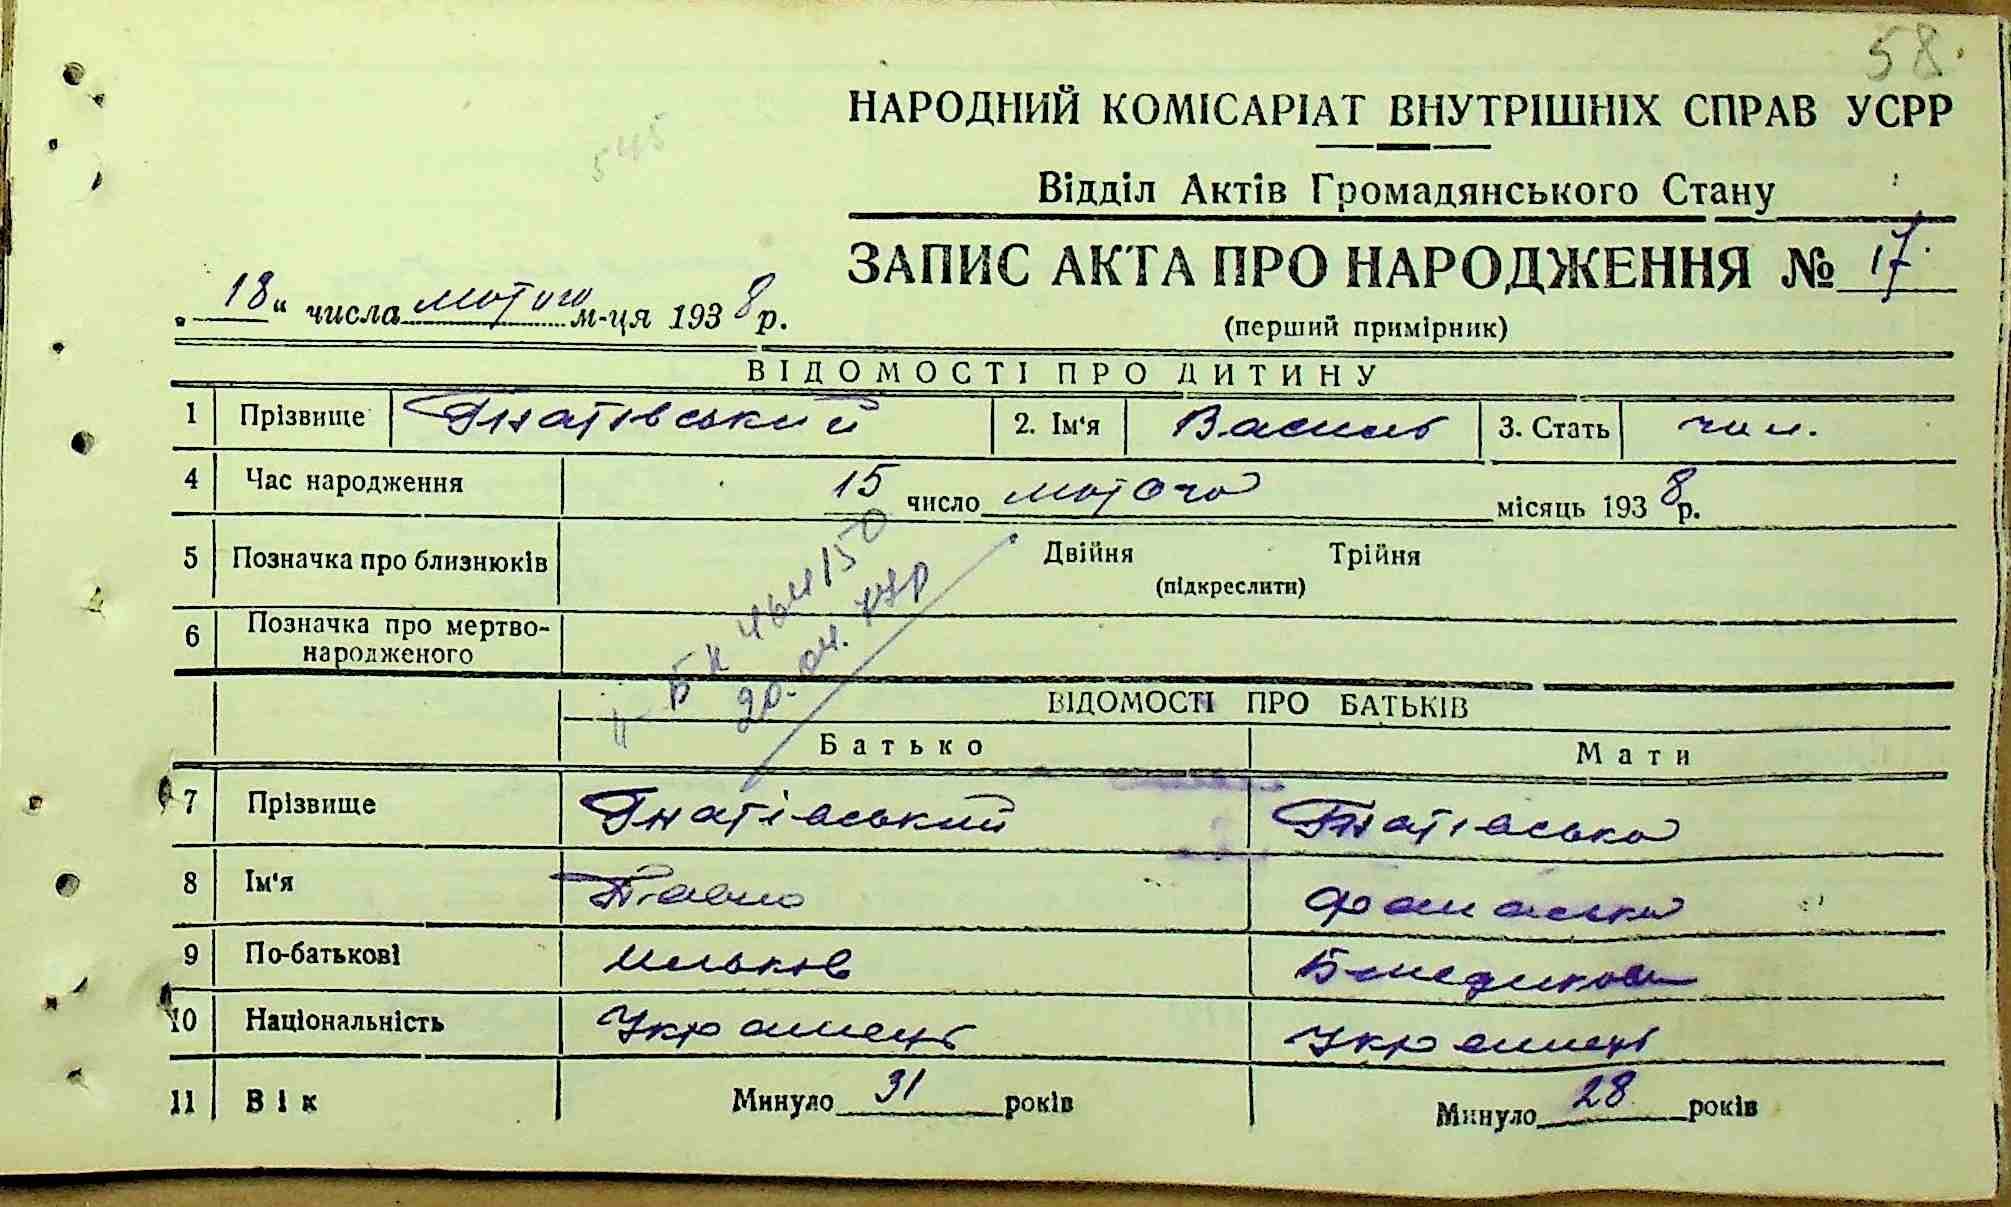 58
545
НАРОДНИЙ КОМІСАРІАТ ВНУТРІШНІХ СПРАВ УСРР
Відділ Актів Громадянського Стану
ЗАПИС АКТА ПРО НАРОДЖЕННЯ № 17
„18“ числа лютого м-ця 1938 р.
(перший примірник)
ВІДОМОСТІ ПРО ДИТИНУ
1 Прізвище Гнатівський 2. Ім'я Василь 3. Стать чол.
4 Час народження 15 число лютого місяць 1938 р.
5 Позначка про близнюків Двійня Трійня
(підкреслити)
6 Позначка про мертво-
народженого
ВІДОМОСТІ ПРО БАТЬКІВ
Батько Мати
7 Прізвище Гнатівський Гнатівська
8 Ім'я Павло
9 По-батькові
10 Національність Українець Українець
11 Вік Минуло 31 років Минуло 28 років